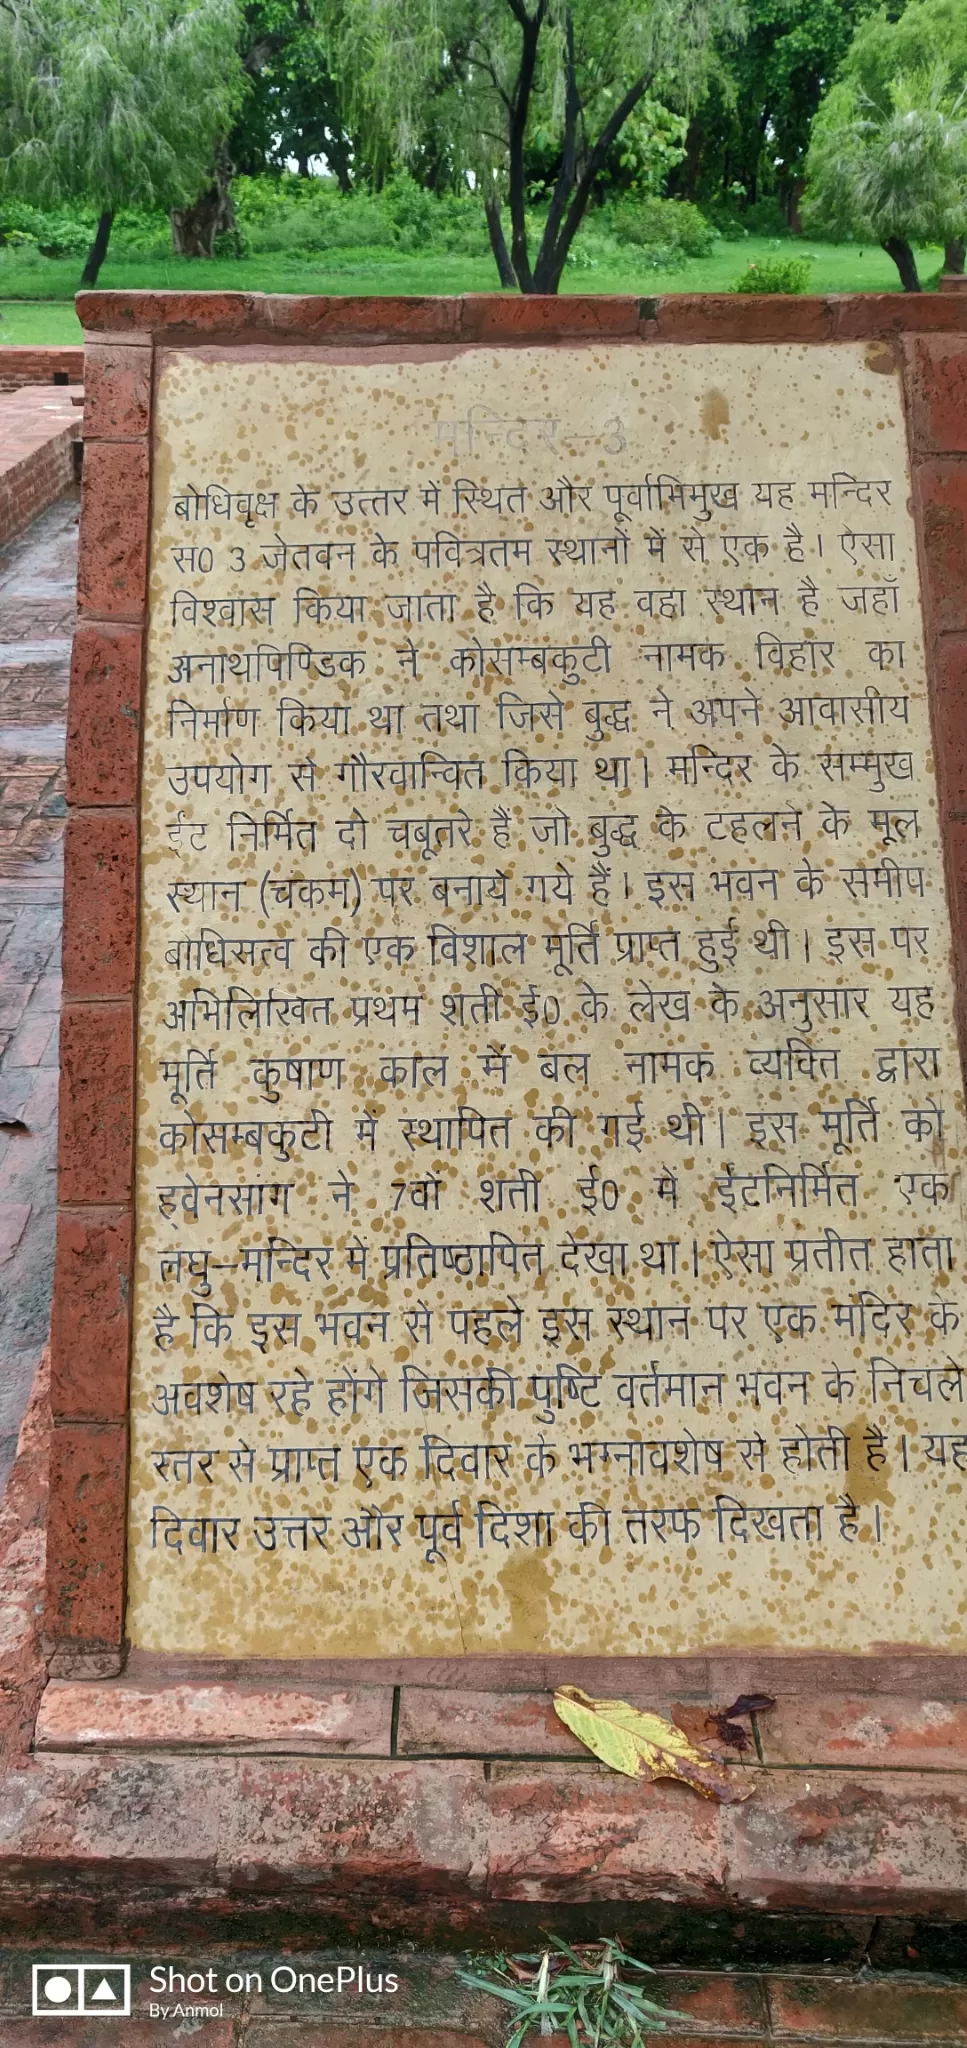 मन्दिर–3
बोधिवृक्ष के उत्तर में स्थित और पूर्वाभिमुख यह मन्दिर
स0 3 जेतवन के पवित्रतम स्थानों में से एक है। ऐसा
विश्वास किया जाता है कि यह वहा स्थान है जहाँ
अनाथपिण्डिक ने कोसम्बकुटी नामक विहार का
निर्माण किया था तथा जिसे बुद्ध ने अपने आवासीय
उपयोग से गौरवान्वित किया था। मन्दिर के सम्मुख
ईंट निर्मित दो चबूतरे हैं जो बुद्ध के टहलने के मूल
स्थान (चंकम) पर बनाये गये हैं। इस भवन के समीप
बोधिसत्व की एक विशाल मूर्ति प्राप्त हुई थी। इस पर
अभिलिखित प्रथम शती ई0 के लेख के अनुसार यह
मूर्ति कुषाण काल में बल नामक व्यक्ति द्वारा
कोसम्बकुटी में स्थापित की गई थी। इस मूर्ति को
ह्वेनसांग ने 7वीं शती ई0 में ईंटनिर्मित एक
लघु–मन्दिर में प्रतिष्ठापित देखा था। ऐसा प्रतीत होता
है कि इस भवन से पहले इस स्थान पर एक मंदिर के
अवशेष रहे होंगे जिसकी पुष्टि वर्तमान भवन के निचले
स्तर से प्राप्त एक दिवार के भग्नावशेष से होती है। यह
दिवार उत्तर और पूर्व दिशा की तरफ दिखता है।
Shot on OnePlus
By Anmol